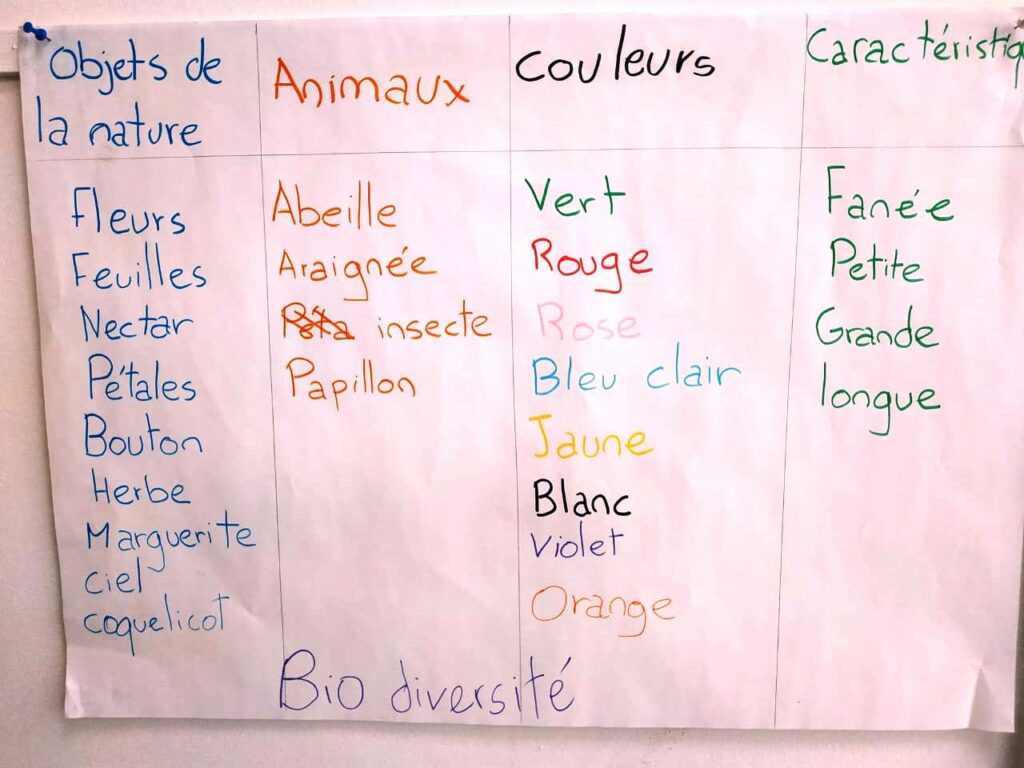 Objets de
la nature
Fleurs
Feuilles
Nectar
Pétales
Bouton
Herbe
Marguerite
ciel
coquelicot
Animaux
Abeille
Araignée
insecte
Papillon
Couleurs
Vert
Rouge
Rose
Bleu clair
Jaune
Blanc
violet
Orange
Caractéristiq
Fanée
Petite
Grande
longue
Bio diversité